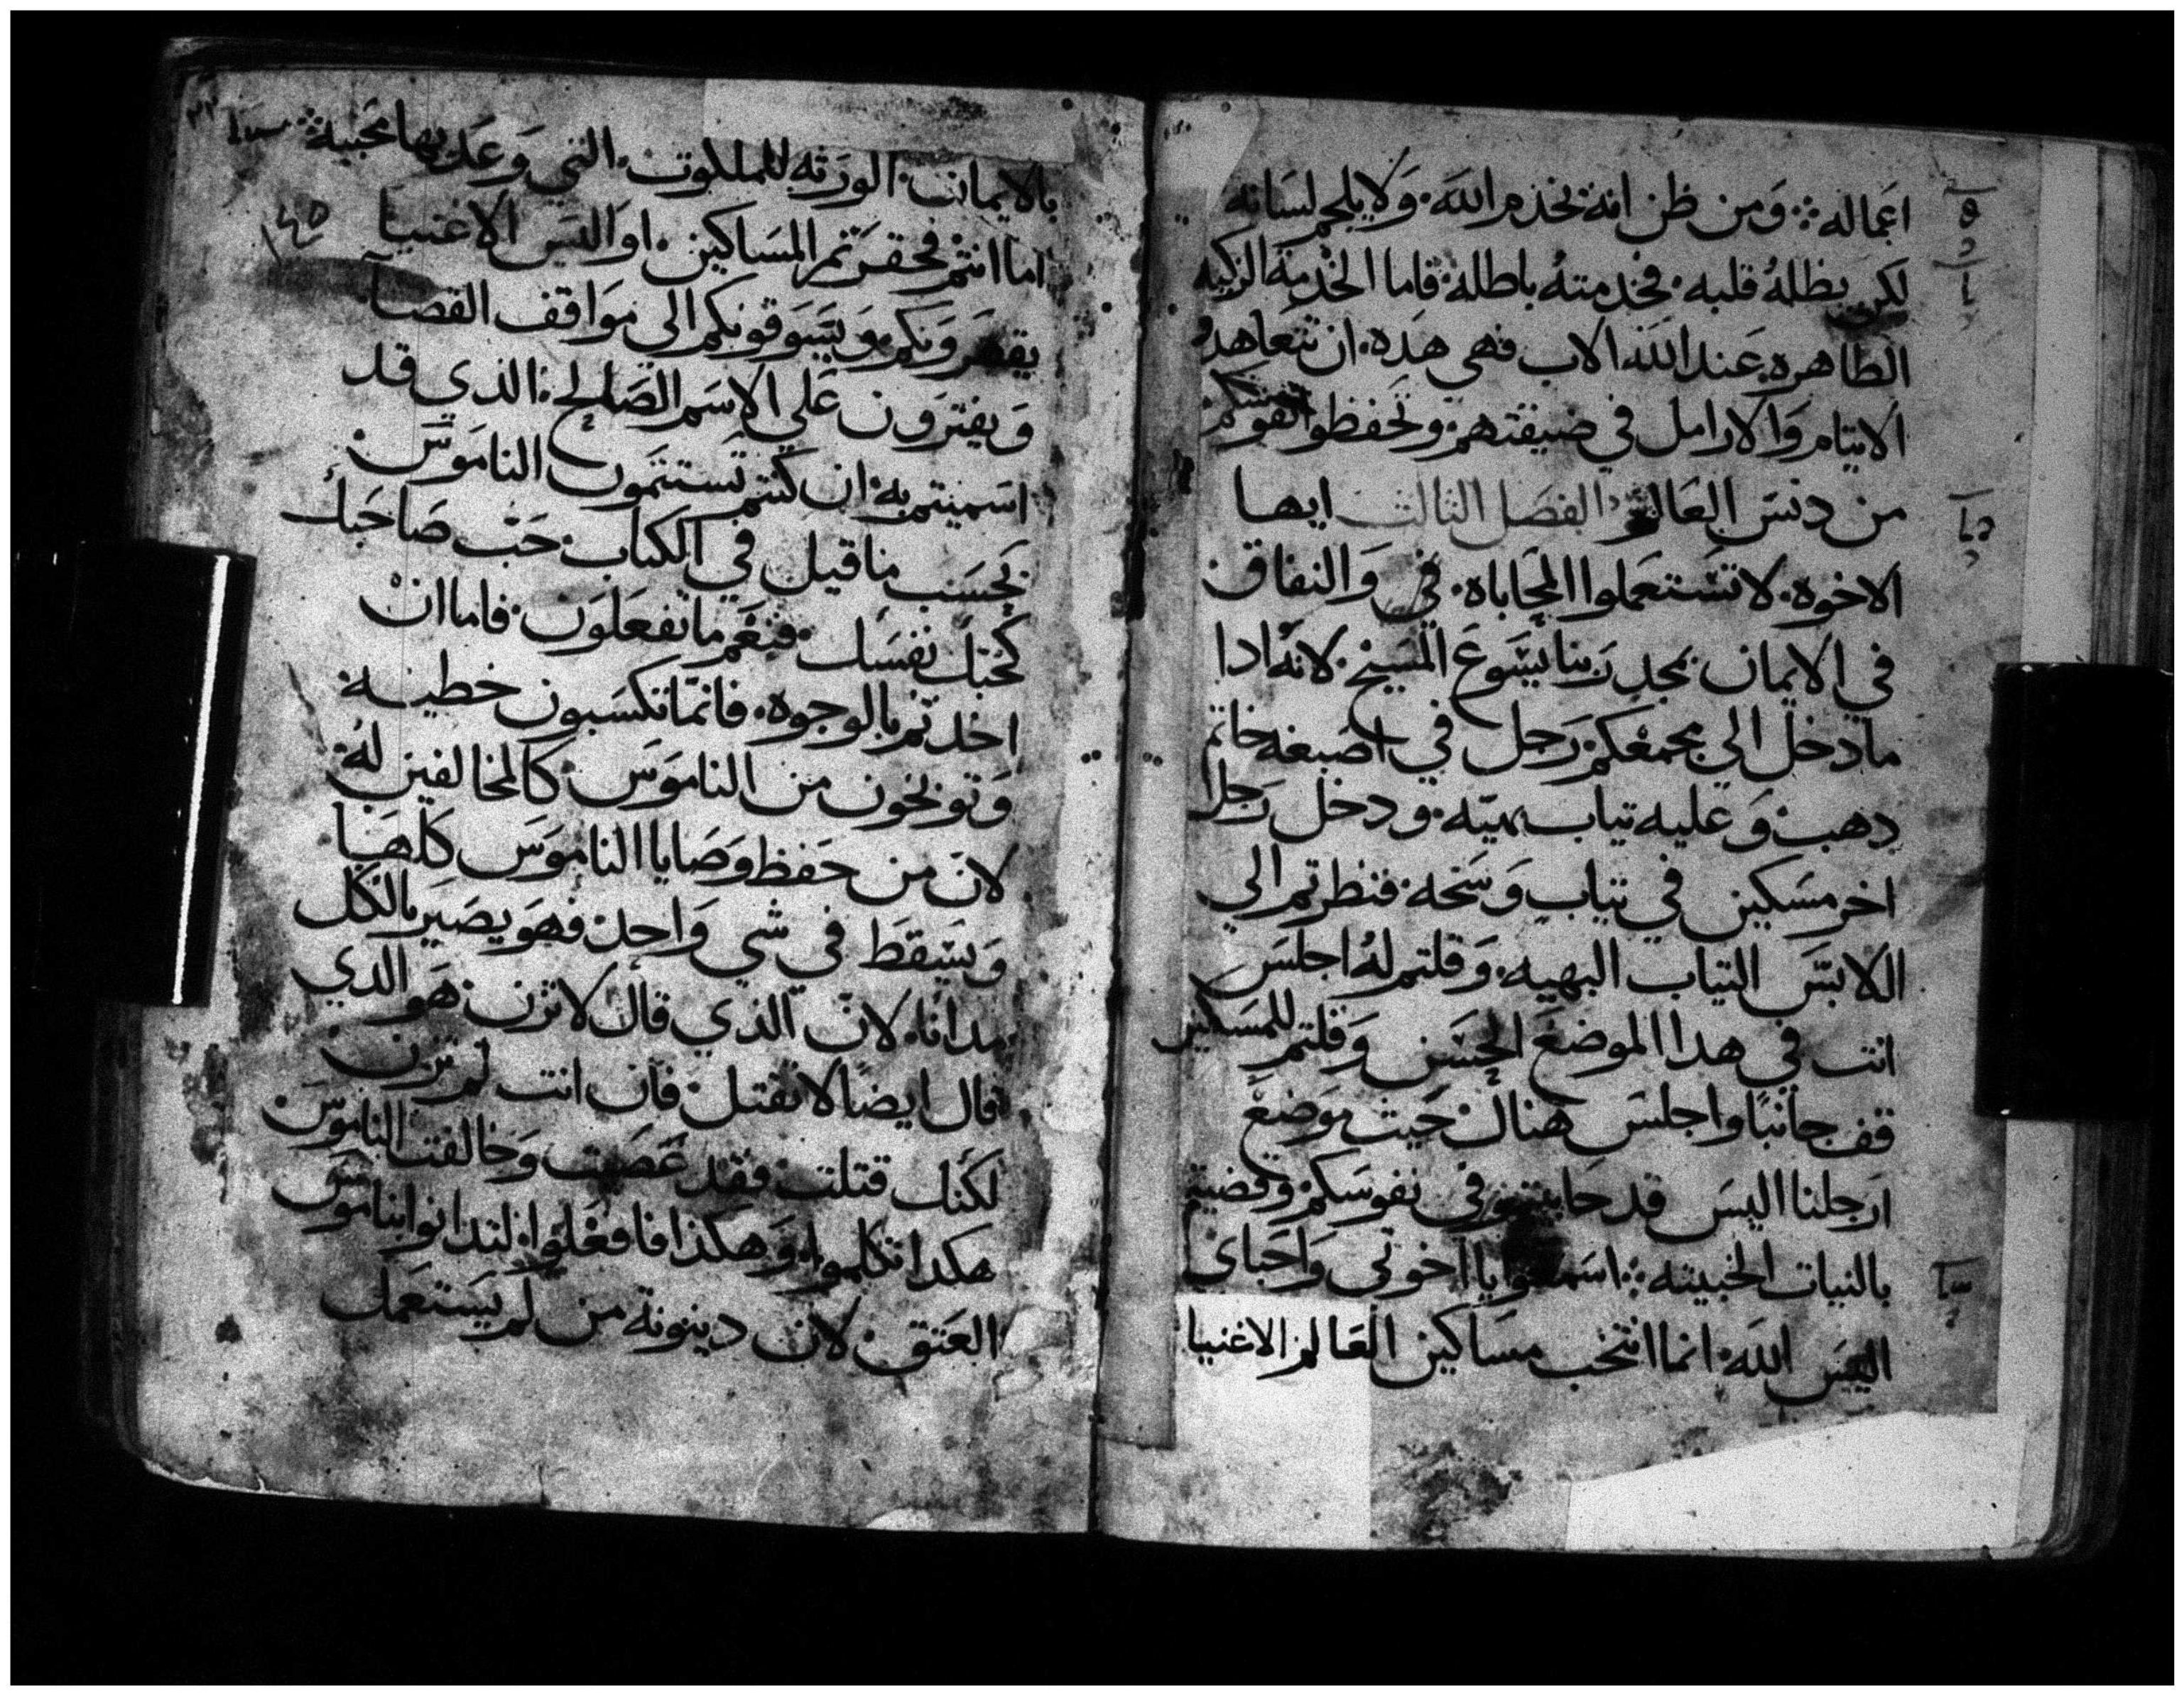 اعماله ܀ ومن ظن انه يخدم الله. ولا يلجم لسانه
لكن يظله قلبه. فخدمته باطله. فاما الخدمة الزكيه
الطاهره عند الله الاب فهي هده. ان تتعاهدو
الايتام والارامل في ضيقتهم. وتحفظوا نفوسكم
من دنس العالم ܀ الفصل التالت ايها
الاخوه. لا تستعملوا المحاباه. في والنفاق
في الايمان بمجد ربنا يسوع المسيح. لانه ادا
ما دخل الي مجمعكم رجل في اصبغه خاتم
دهب. وعليه تياب بهيه. ودخل رجلا
اخر مسكين في تياب وسخه. فنظرتم الي
اللابس التياب البهيه. وقلتم له اجلس
انت في هدا الموضع الحسن وقلتم للمسكين
قف جانبا واجلس هناك. حيت موضع
ارجلنا اليس قد حابيتم في نفوسكم. وقضيتم
بالنيات الخبيته ܀ اسمعوا يا اخوتي واحباي
اليس الله. انما انتخب مساكين العالم الاغنيا
بالايمان. الورته للملكوت. التي وعد بها محبيه ܀
اما انتم فحقرتم المساكين. او اليس الاغنيا
يقهرونكم. ويسوقونكم الي مواقف القضا
ويفترون علي الاسم الصالح. الذي قد
اسميتم به. ان كنتم تستتمون الناموس.
بحسب ما قيل في الكتاب. حب صاحبك
كحبك نفسك. فنعم ما تفعلون. فاما ان
اخدتم بالوجوه. فانما تكسبون خطيه
وتوبخون من الناموس. كالمخالفين له
لان من حفظ وصايا الناموس كلها
ويسقط في شي واحد. فهو يصير بالكل
مدانا. لان الذي قال لا تزن. هو الدي
قال ايضا لا تقتل. فان انت لم تزن.
لكنك قتلت. فقد عصيت وخالفت الناموس.
هكدا تكلموا. وهكذا فافعلوا. لتدانوا بناموس
العتق. لان دينونة من لم يستعمل